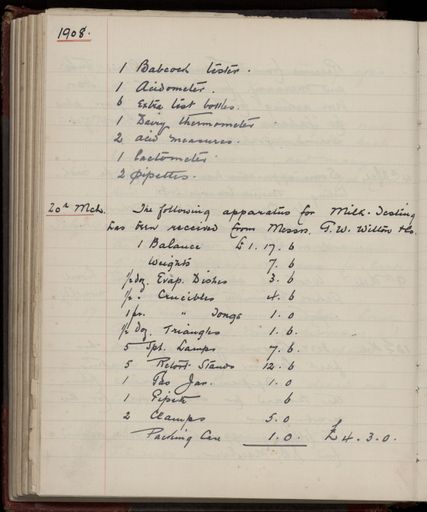 1908.
1 Babcock tester.
1 Acidometer.
6 Extra test bottles.
1 Dairy thermometer
2 acid measures.
1 lactometer
2 pipettes.
20th Mch. The following apparatus for Milk-Testing
has been received from Messrs. G. W. Wilton & Co.
1 Balance £1. 17. 6
Weights 7. 6
½ doz. Evap. Dishes 3. 6
½ " Crucibles 4. 6
1 pr. " Tongs 1. 0
½ doz. Triangles 1. 6.
5 Spt. Lamps 7. 6.
5 Retort Stands 12. 6
1 Gas Jar. 1. 0
1 Pipette 6
2 Clamps 5. 0
Packing Case 1. 0. £4. 3. 0.